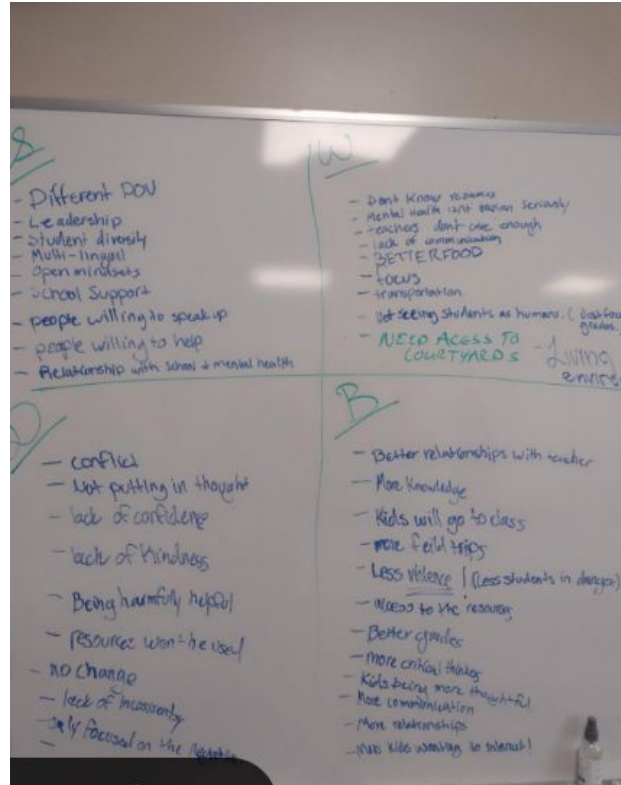 S
- Different POV
- Leadership
- Student diversity
- Multi-lingual
- Open mindsets
- School Support
- people willing to speak up
- people willing to help
- Relationship with school + mental health
W
- Dont know resources
- Mental Health isnt taken seriously
- teachers dont care enough
- lack of communication
- BETTER FOOD
- FOCUS
- transportation
- Not seeing students as humans. (
grades.
- NEED ACESS TO
COURTYARDS
- Living
enviro
D
- conflict
- Not putting in thought
- lack of confidence
- lack of kindness
- Being harmfully helpful
- resources won't be used
- no change
- lack of
- only focused on the negative
-
B
- Better relationships with teacher
- More Knowledge
- Kids will go to class
- more feild trips
- Less violence / (Less students in danger)
- access to the resources
- Better grades
- more critical thinking
- Kids being more thoughtful
- More communication
- More relationships
- More kids wanting to interact!